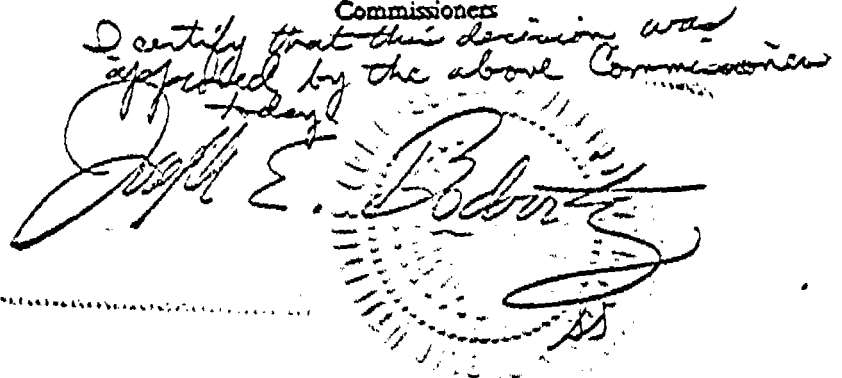 Commissioners
I certify that this decision was
approved by the above Commissioners
today
Joseph E. Bodovitz
ss